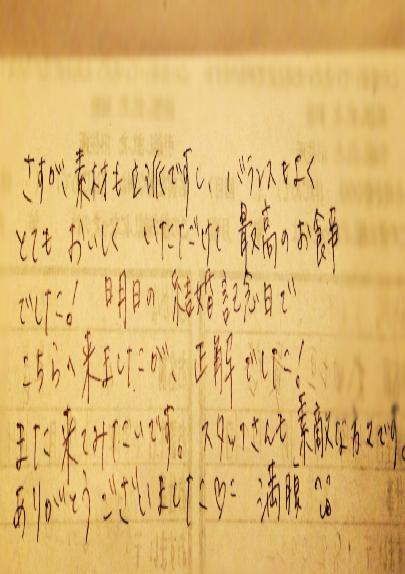 さすが、素材も立派ですし、バランスもよく
とても おいしく いただけて 最高のお食事
でした! 明日の 結婚記念日で
こちらへ来ましたが、正解でした!
また来てみたいです。スタッフさんも素敵な方々です。
ありがとうございました♡ 満腹